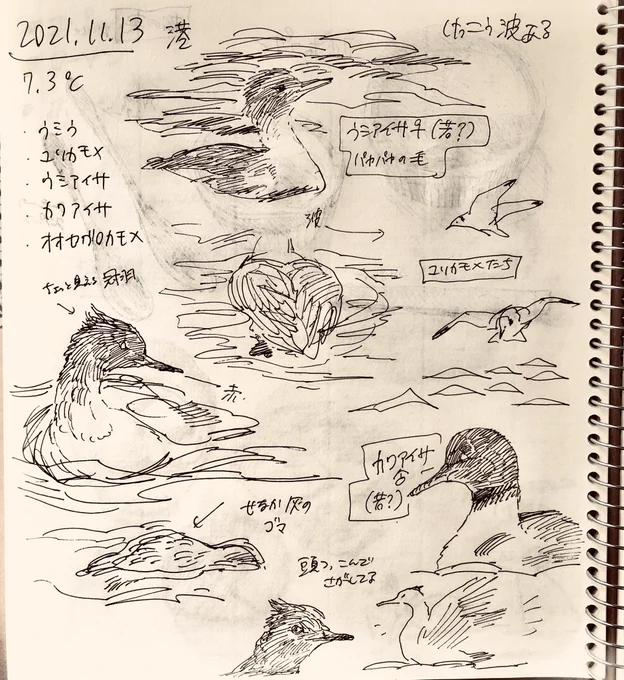 2021.11.13 港
けっこう波ある
7.3℃
・ウミウ
・ユリカモメ
・ウミアイサ
・カワアイサ
・オオセグロカモメ
ウミアイサ♀(若?)
パヤパヤの毛
波
ちょっと見える冠羽
ユリカモメたち
赤
カワアイサ
(若?)
せなか灰の
ゴマ
頭つっこんで
さがしてる